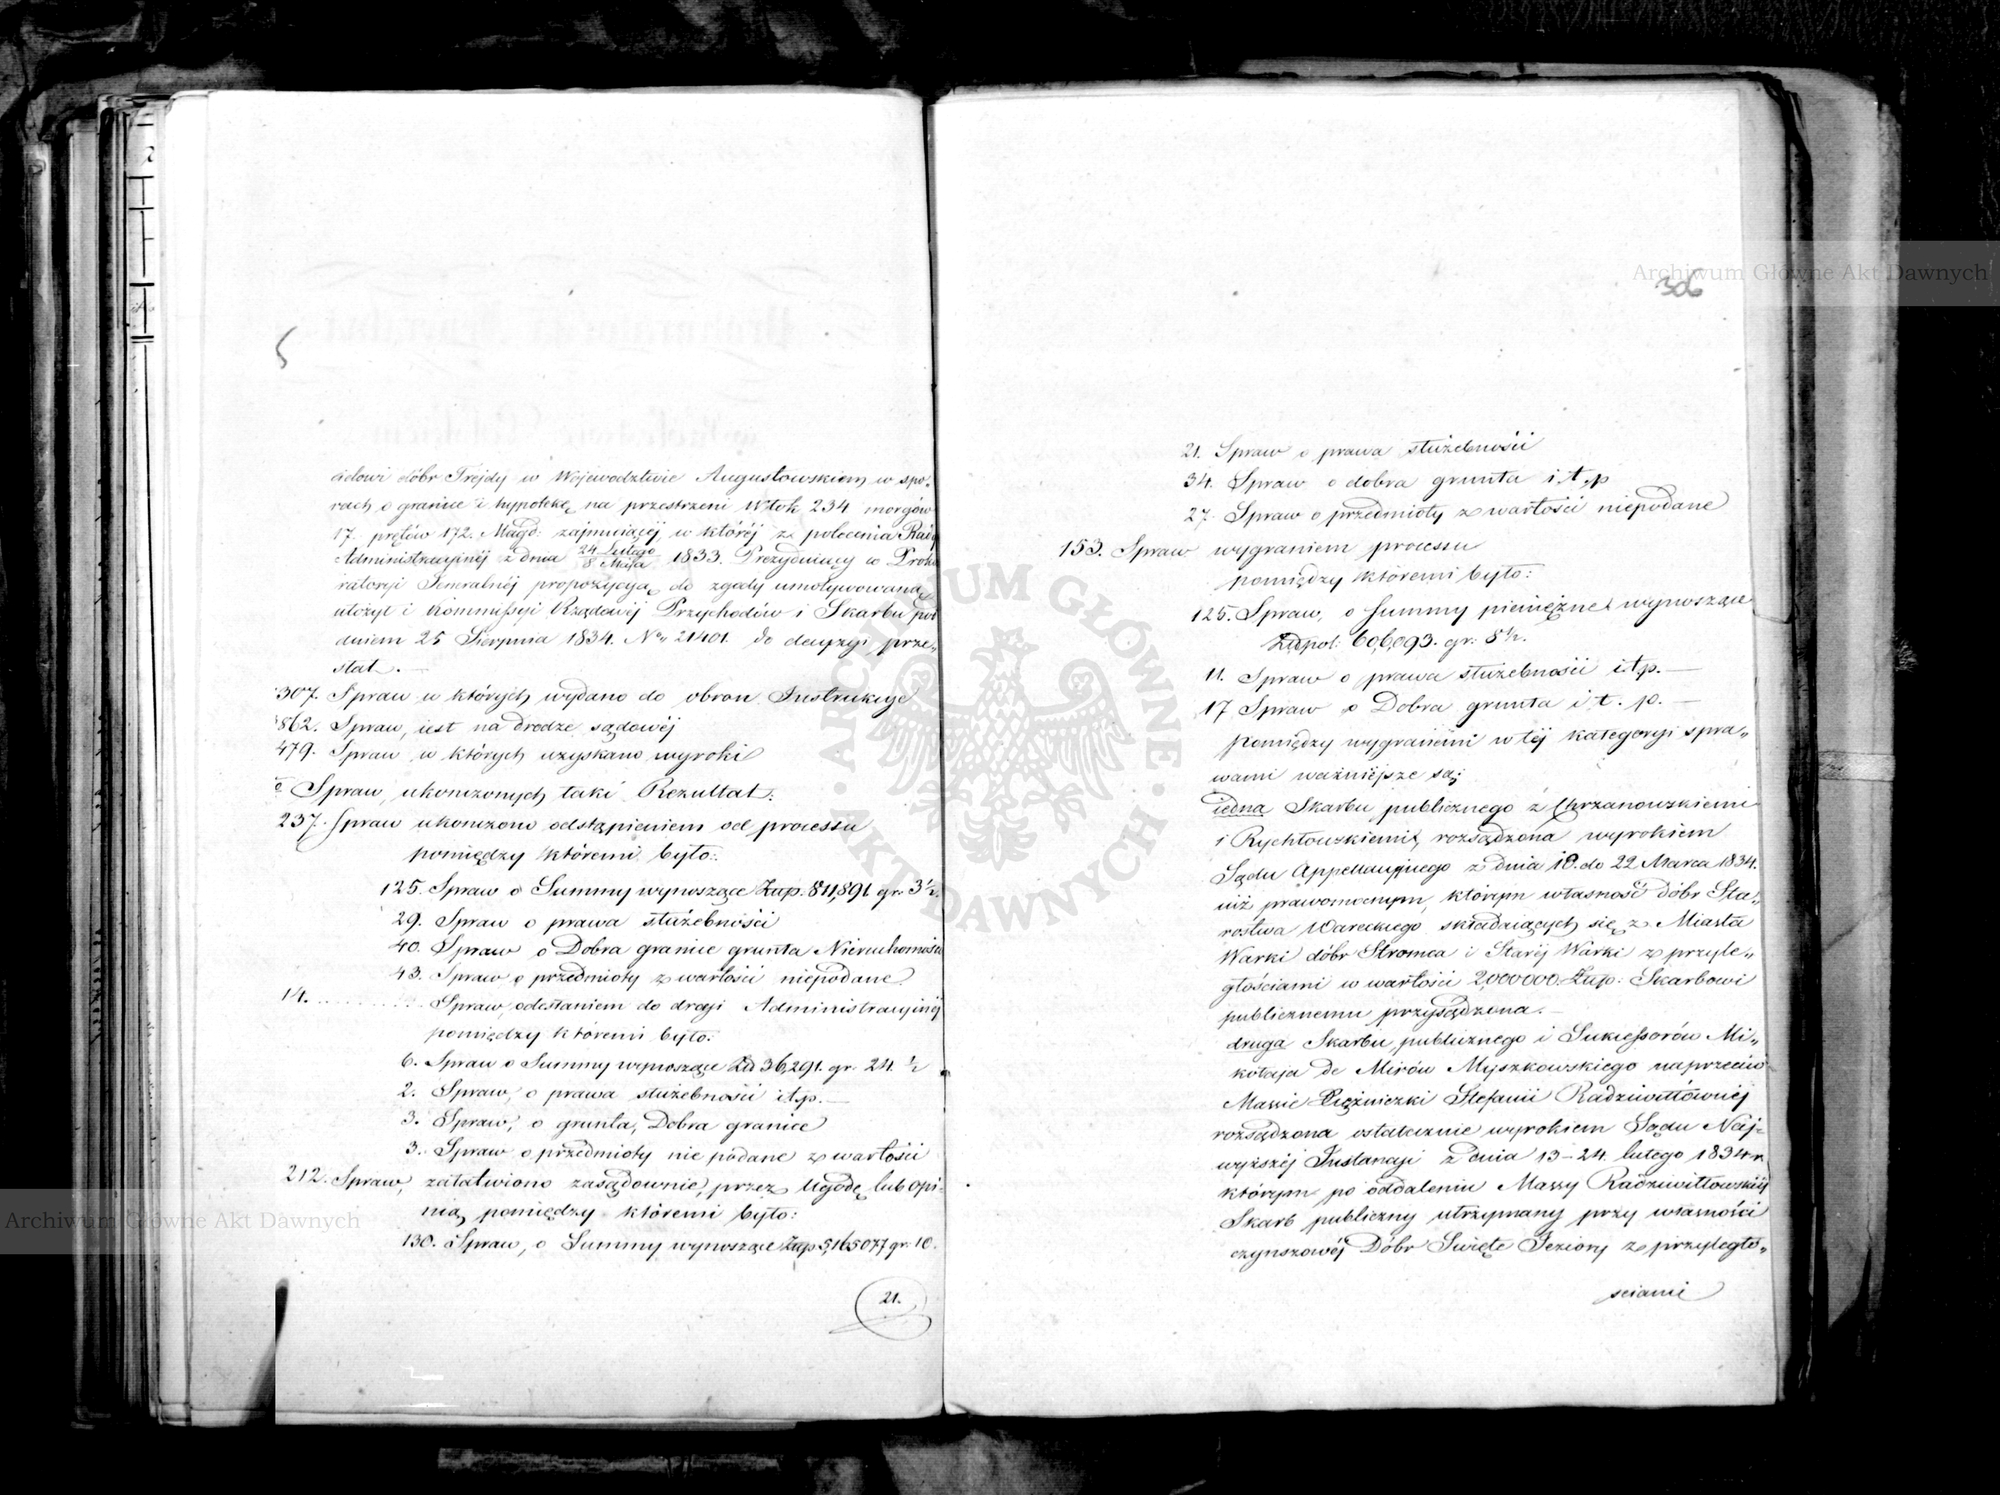 5
cielowi dóbr Trejdy w Wojewodztwie Augustowskiem w spo„
rach o granice i hypotekę na przestrzeni Włok 234 morgów
17 prętów 172. Magd: zajmuiącéj w któréj z polecenia Rady
Administracyinéj z dnia 24 Lutego / 8 Maja 1833. Prezyduiący w Proku
ratoryi Jeneralnéj propozycyą do zgody umotywowaną
ułożył i Kommissyi Rządowéj Przychodów i Skarbu pod
dniem 25 Sierpnia 1834. Nr 21401. do decyzyi prze„
słał. —
307. Spraw w których wydano do obron Instrukcye
862. Spraw, iest na drodze sądowéj
479. Spraw w których uzyskano wyroki
Spraw, ukonczonych taki Rezultat.
237. Spraw ukonczono odstąpieniem od processu
pomiędzy któremi było:
125. Spraw o Summy wynoszące Złnp. 811,891 gr: 3½.
29. Spraw o prawa służebności
40. Spraw o Dobra granice grunta Nieruchomości
43. Spraw o przedmioty z wartości niepodane
14. Spraw, odesłaniem do drogi Administracyinéj
pomiędzy któremi było:
6. Spraw o Summy wynoszące Zł 36,291. gr. 24. ½
2. Spraw, o prawa służebności i t.p. —
3. Spraw, o grunta, Dobra granice
3. Spraw o przedmioty nie podane z wartości
212. Spraw, załatwiono zasądownie, przez Ugodę lub opi„
nią pomiędzy któremi było:
130. Spraw, o Summy wynoszące Złnp 5,165077 gr: 10.
21.
306
21. Spraw o prawa służebności
34. Spraw o dobra grunta i t.p
27. Spraw o przedmioty z wartości niepodane
153. Spraw wygraniem processu
pomiędzy któremi było:
125. Spraw, o summy pieniężne wynoszące
Złpol: 606,093. gr: 8½.
11. Spraw o prawa służebności i t.p. —
17 Spraw o Dobra grunta i t. p. —
pomiędzy wygranemi w téj kategoryi spra„
wami ważniejsze są:
iedna Skarbu publicznego z Chrzanowskiemi
i Rychłowskiemi, rozsądzona wyrokiem
Sądu Appellacyjnego z dnia 18. do 22 Marca 1834.
iuż prawomocnym, którym własność dóbr Sta„
rostwa Wareckiego składaiących się z Miasta
Warki dóbr Stromca i Staréj Warki z przyle„
głościami w wartości 2,000000 Złnp: Skarbowi
publicznemu przysądzona. —
druga Skarbu publicznego i Sukcessorów Mi„
kołaja de Mirów Myszkowskiego naprzeciw
Massie Xiężniczki Stefanii Radziwiłłównéj
rozsądzona ostatecznie wyrokiem Sądu Naj„
wyższéj Instancyi z dnia 13-24 lutego 1834 r.
którym po oddaleniu Massy Radziwiłłowskiéj
Skarb publiczny utrzymany przy własności
czynszowéj Dóbr Święte Jeziory z przyległo„
sciami
Archiwum Główne Akt Dawnych
Archiwum Główne Akt Dawnych
ARCHIWUM GŁÓWNE AKT DAWNYCH